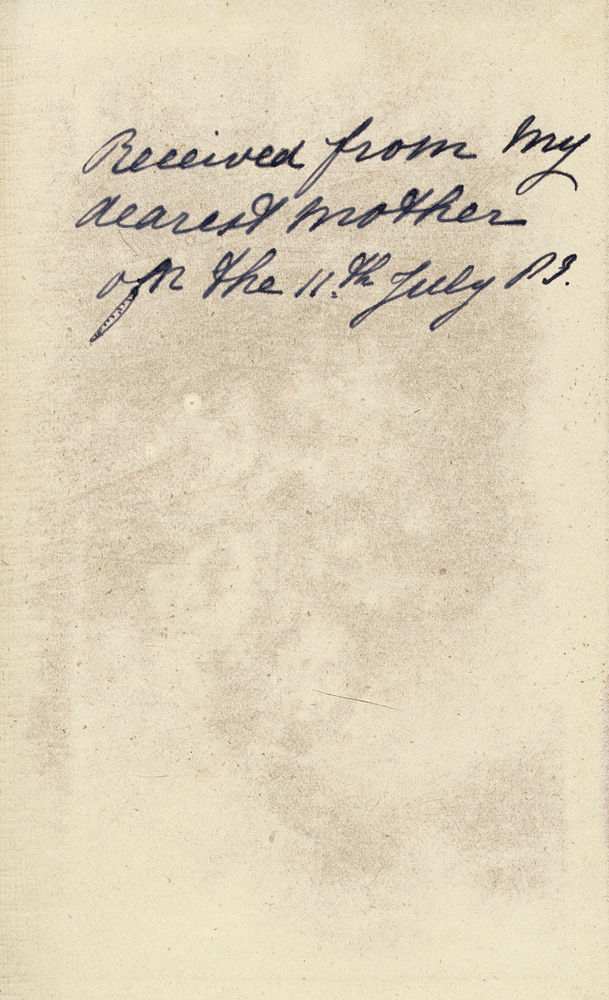 Received from my
dearest mother
on the 11.th July 93.